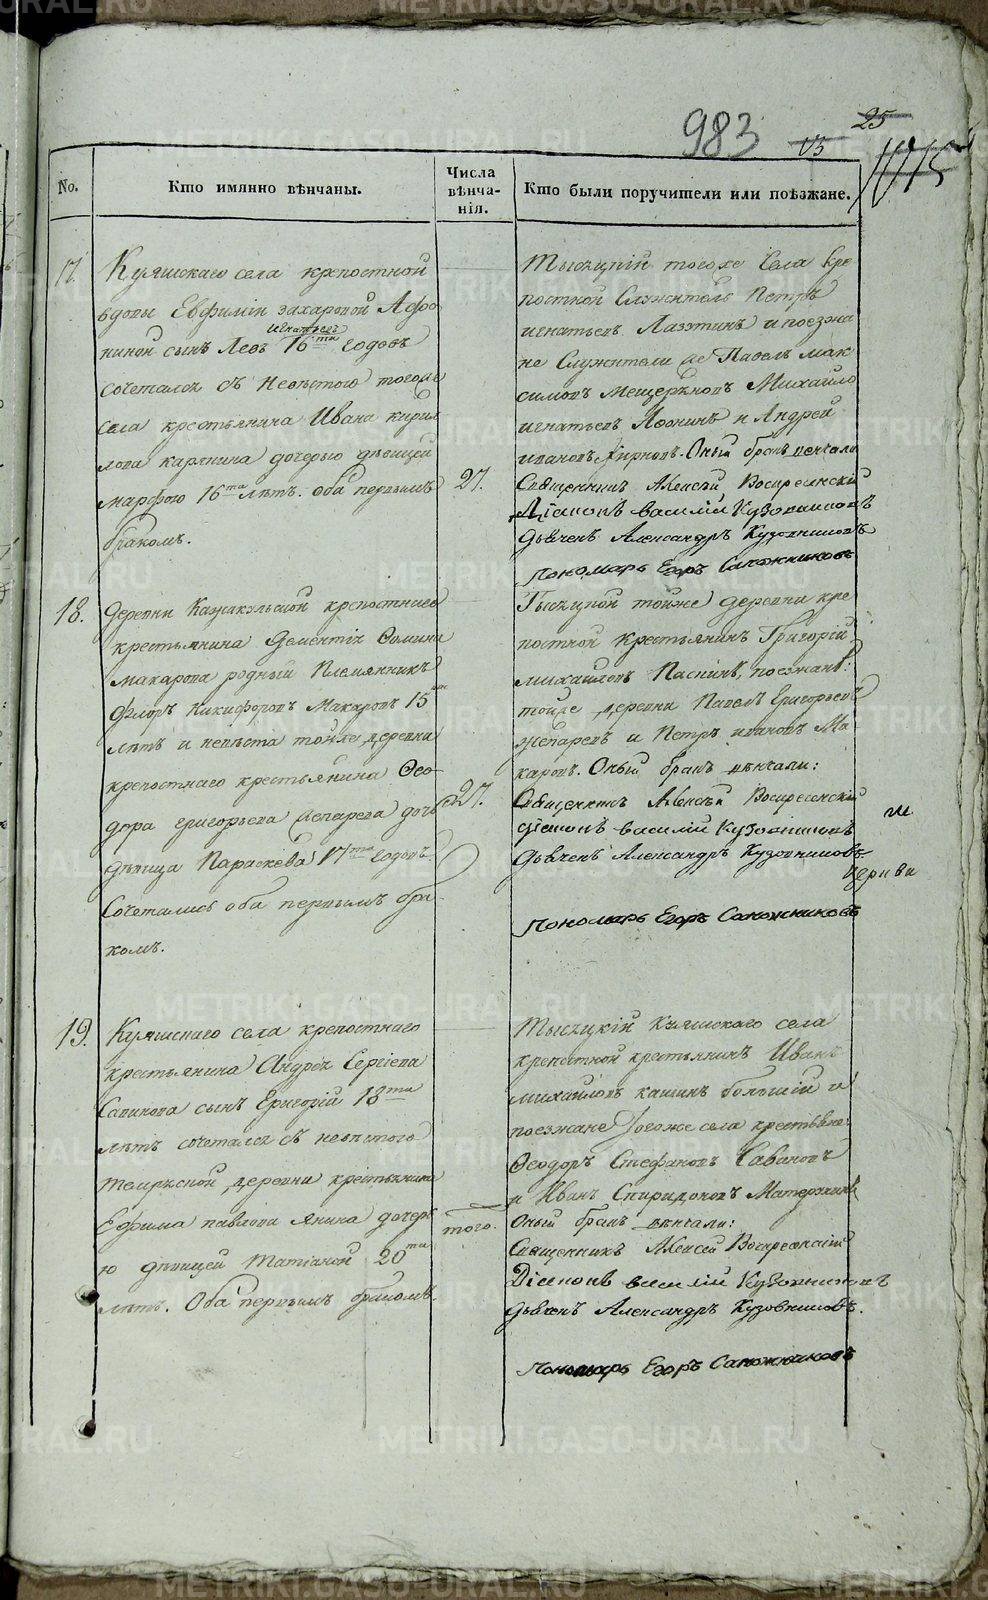 983
25
No.
Кто имянно вѣнчаны.
Числа
вѣнча-
нія.
Кто были поручители или поѣзжане.
17.
Куяшскаго села крѣпостной
вдовы Евфиміи Захаровой Афо
игнатьевъ
ниной сынъ Левъ 16та годовъ
сочетался съ невѣстою тогоже
села крестьянина Ивана Кирил
лова дочерью дѣвицей
марфою 16та лѣтъ. оба первымъ
бракомъ.
27.
Тысяцкій тогоже села кре
постной Служитель Петръ
игнатьевъ и поезжа
не Служители же Павелъ мак
симовъ Мещеряковъ Михайло
игнатьевъ Афонинъ и Андрей
ивановъ. Оный бракъ венчали
Священникъ Алексѣй Воскресенскій
Діаконъ василій Кузовниковъ
Дьячекъ Александръ Кузовниковъ
Пономарь Егоръ Сапожниковъ
18.
Деревни крепостнаго
крестьянина Дементія Фомина
макарова родный Племянникъ
Флоръ Никифоровъ Макаровъ 15ти
лѣтъ и невѣста тойже деревни
крепостнаго крестьянина Ѳео-
дора григорьева дочь
дѣвица Параскева 17та годовъ
Сочетались оба первымъ бра-
комъ.
27.
Тысяцкой тойже деревни кре
постной крестьянинъ Григорій
михайловъ поезжанѣ:
тойже деревни Павелъ Григорьевъ
и Петръ ивановъ Ма-
каровъ. Оный бракъ вѣнчали:
Священникъ Алексѣй Воскресенскій
діаконъ василій Кузовниковъ
Дьячекъ Александръ Кузовниковъ
Пономарь Егоръ Сапожниковъ
19.
Куяшскаго села крепостнаго
крестьянина Андрея Сергіева
сынъ Григорій 18та
лѣтъ сочетался съ невѣстою
деревни крестьянина
Ефима павлова янина дочерь
ю дѣвицей Татіаной 20ти
лѣтъ. Оба первымъ бракомъ.
того.
Тысяцкій Куяшскаго села
крепостной крестьянинъ Иванъ
михайловъ кашинъ большій и
поезжане тогоже села крестьяне
Ѳеодоръ Стефановъ
и Иванъ Спиридоновъ
Оный бракъ вѣнчали:
Священникъ Алексей Воскресенскій
Діаконъ василій Кузовниковъ
Дьячекъ Александръ Кузовниковъ.
Пономарь Егоръ Сапожниковъ
METRIKI.GASO-URAL.RU